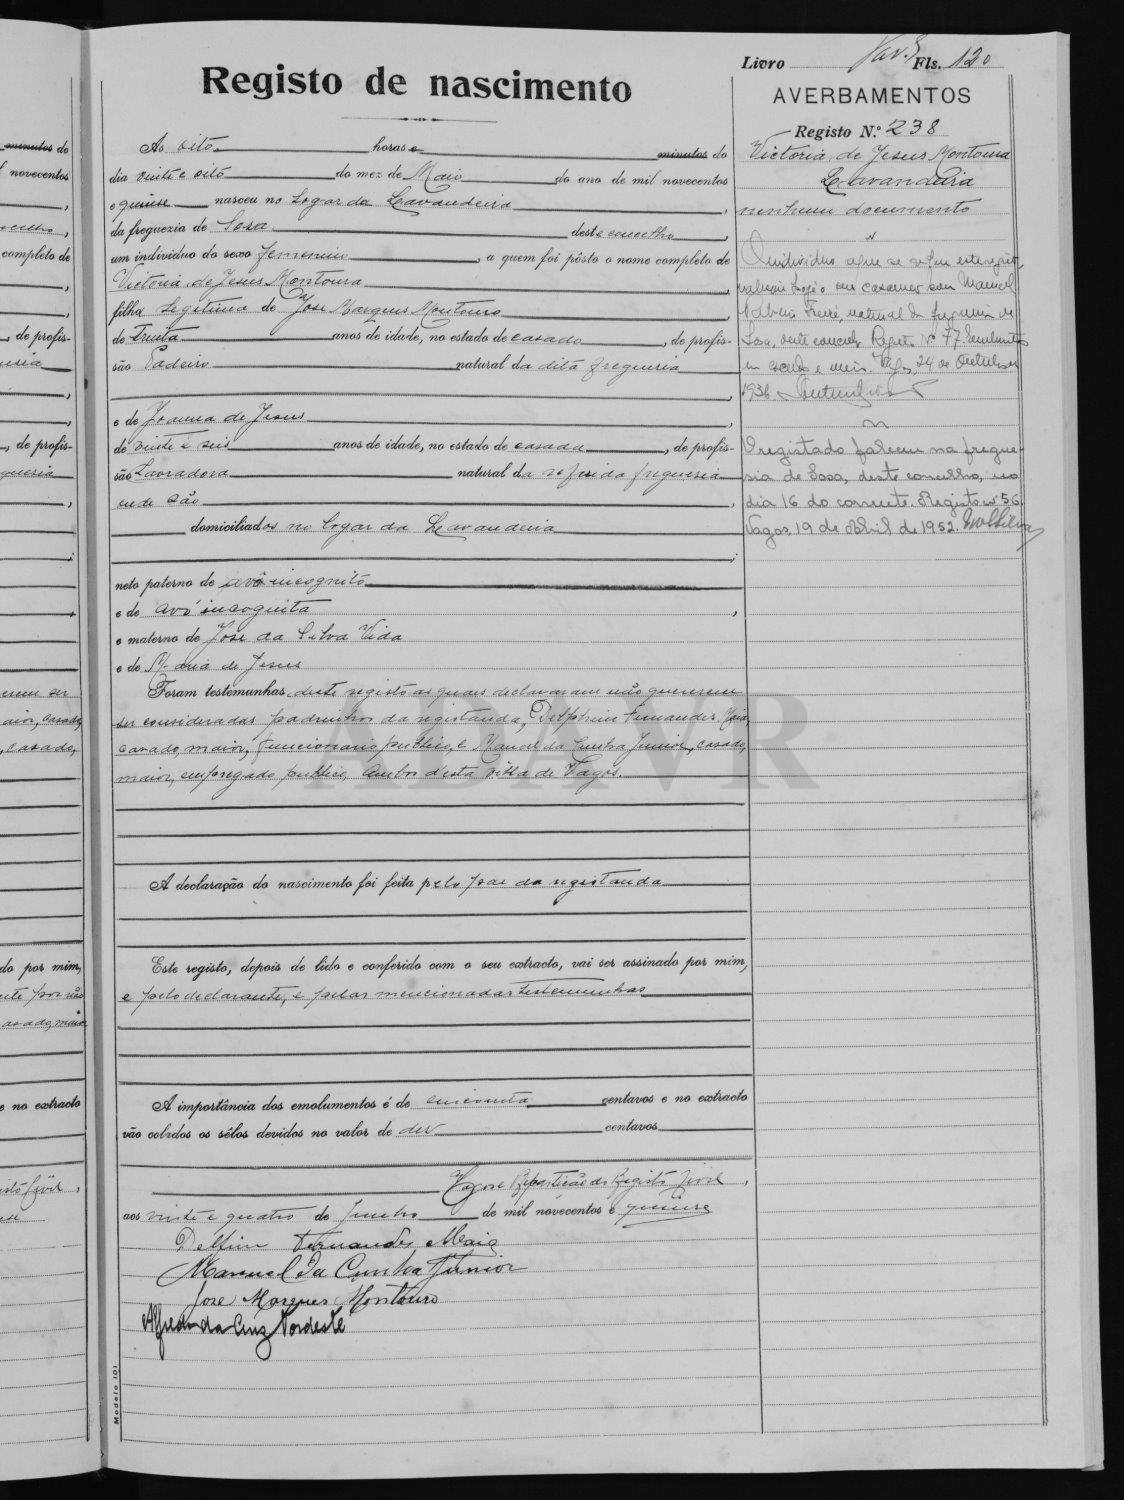 Registo de nascimento
Livro Fls. 120
AVERBAMENTOS
Registo N.º 238
Victoria de Jesus Montoura
Lavandeira
nenhum documento
As oito horas e minutos do
dia vinte e oito do mez de Maio do ano de mil novecentos
e quinse nasceu no Logar da Lavandeira,
da freguezia de Sosa deste concelho,
um individuo do sexo femenino, a quem foi pôsto o nome completo de
Victoria de Jesus Montoura,
filha legitima de Jose Marques Montouro,
de trinta anos de idade, no estado de casado, de profis-
são Padeiro natural da dita freguesia,
e de Joanna de Jesus,
de vinte e seis anos de idade, no estado de casada, de profis-
são Lavradora natural da referida freguesia
onde são,
domiciliados no logar da Lavandeira;
neto paterno de avô incognito
e de avó incognita,
e materno de Jose da Silva Vida
e de Maria de Jesus
Foram testemunhas deste registo as quaes declararam não quererem
ser consideradas padrinhos da registanda, Delphim Fernandes Maia,
casado, maior, funcionario publico, e Manoel da Cunha Junior, casado,
maior, empregado publico, ambos d'esta villa de Vagos.
A declaração do nascimento foi feita pelo pae da registanda
Este registo, depois de lido e conferido com o seu extracto, vai ser assinado por mim,
e pelo declarante, e pelas mencionadas testemunhas
A importância dos emolumentos é de cincoenta centavos e no extracto
vão colados os sêlos devidos no valor de dez centavos
Vagos e Repartição do Registo Civil,
aos vinte e quatro de Junho de mil novecentos e quinse
Delfim Fernandes Maia
Manuel da Cunha Junior
Jose Marques Montouro
Alfredo da Cruz Nordeste
Modelo 101
O individuo a que se refere este registo,
casamento com Manuel
Freire, natural da freguesia de
Sosa, deste concelho. Registo N.º 77. Emolumentos
um escudo e meio. Vagos, 24 de Outubro de
1936.
O registado faleceu na fregue-
sia de Sosa, deste concelho, no
dia 16 do corrente. Registo nº 56.
Vagos, 19 de Abril de 1952.
ADAVR
minutos do
novecentos
completo de
de profis-
de profis-
casado,
do por mim,
e no extracto